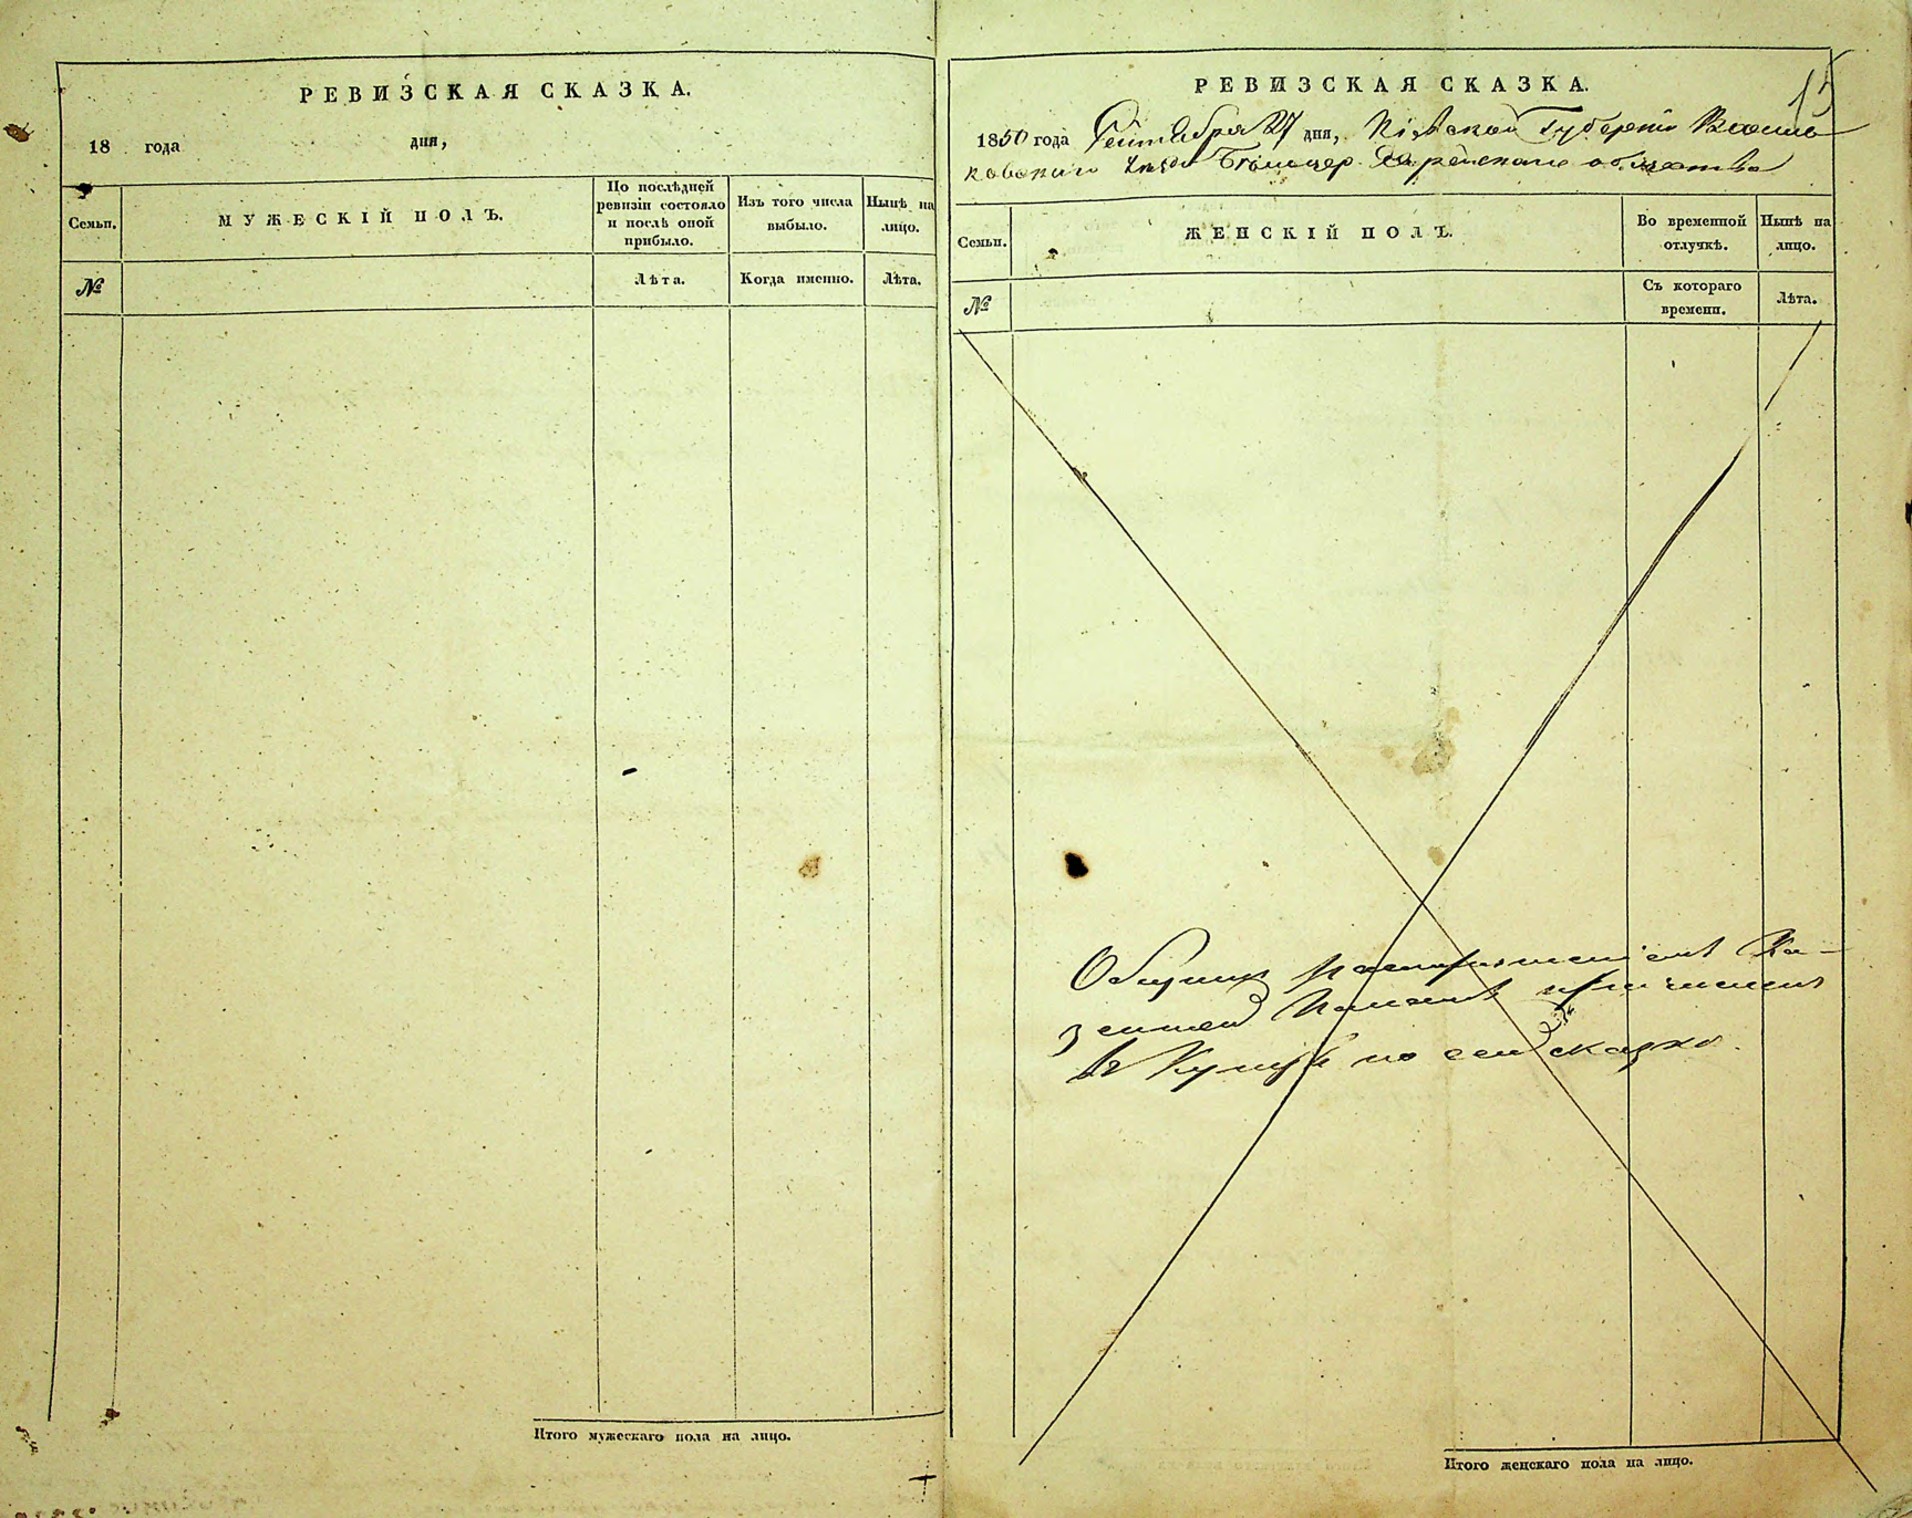 РЕВИЗСКАЯ СКАЗКА.
18 года дня,
Семьи.
МУЖЕСКІЙ ПОЛЪ.
По послѣдней
ревизіи состояло
и послѣ оной
прибыло.
Изъ того числа
выбыло.
Нынѣ на
лицо.
№
Лѣта.
Когда именно.
Лѣта.
Итого мужескаго пола на лицо.
15
РЕВИЗСКАЯ СКАЗКА.
1850 года Сентября 27 дня, Кіевской Губерніи Василь
ковскаго Уезда Белоцер. Еврейскаго общества
Семьи.
ЖЕНСКІЙ ПОЛЪ.
Во временной
отлучкѣ.
Нынѣ на
лицо.
№
Съ котораго
времени.
Лѣта.
Ка-
зенной Палаты
по сей сказке.
Итого женскаго пола на лицо.